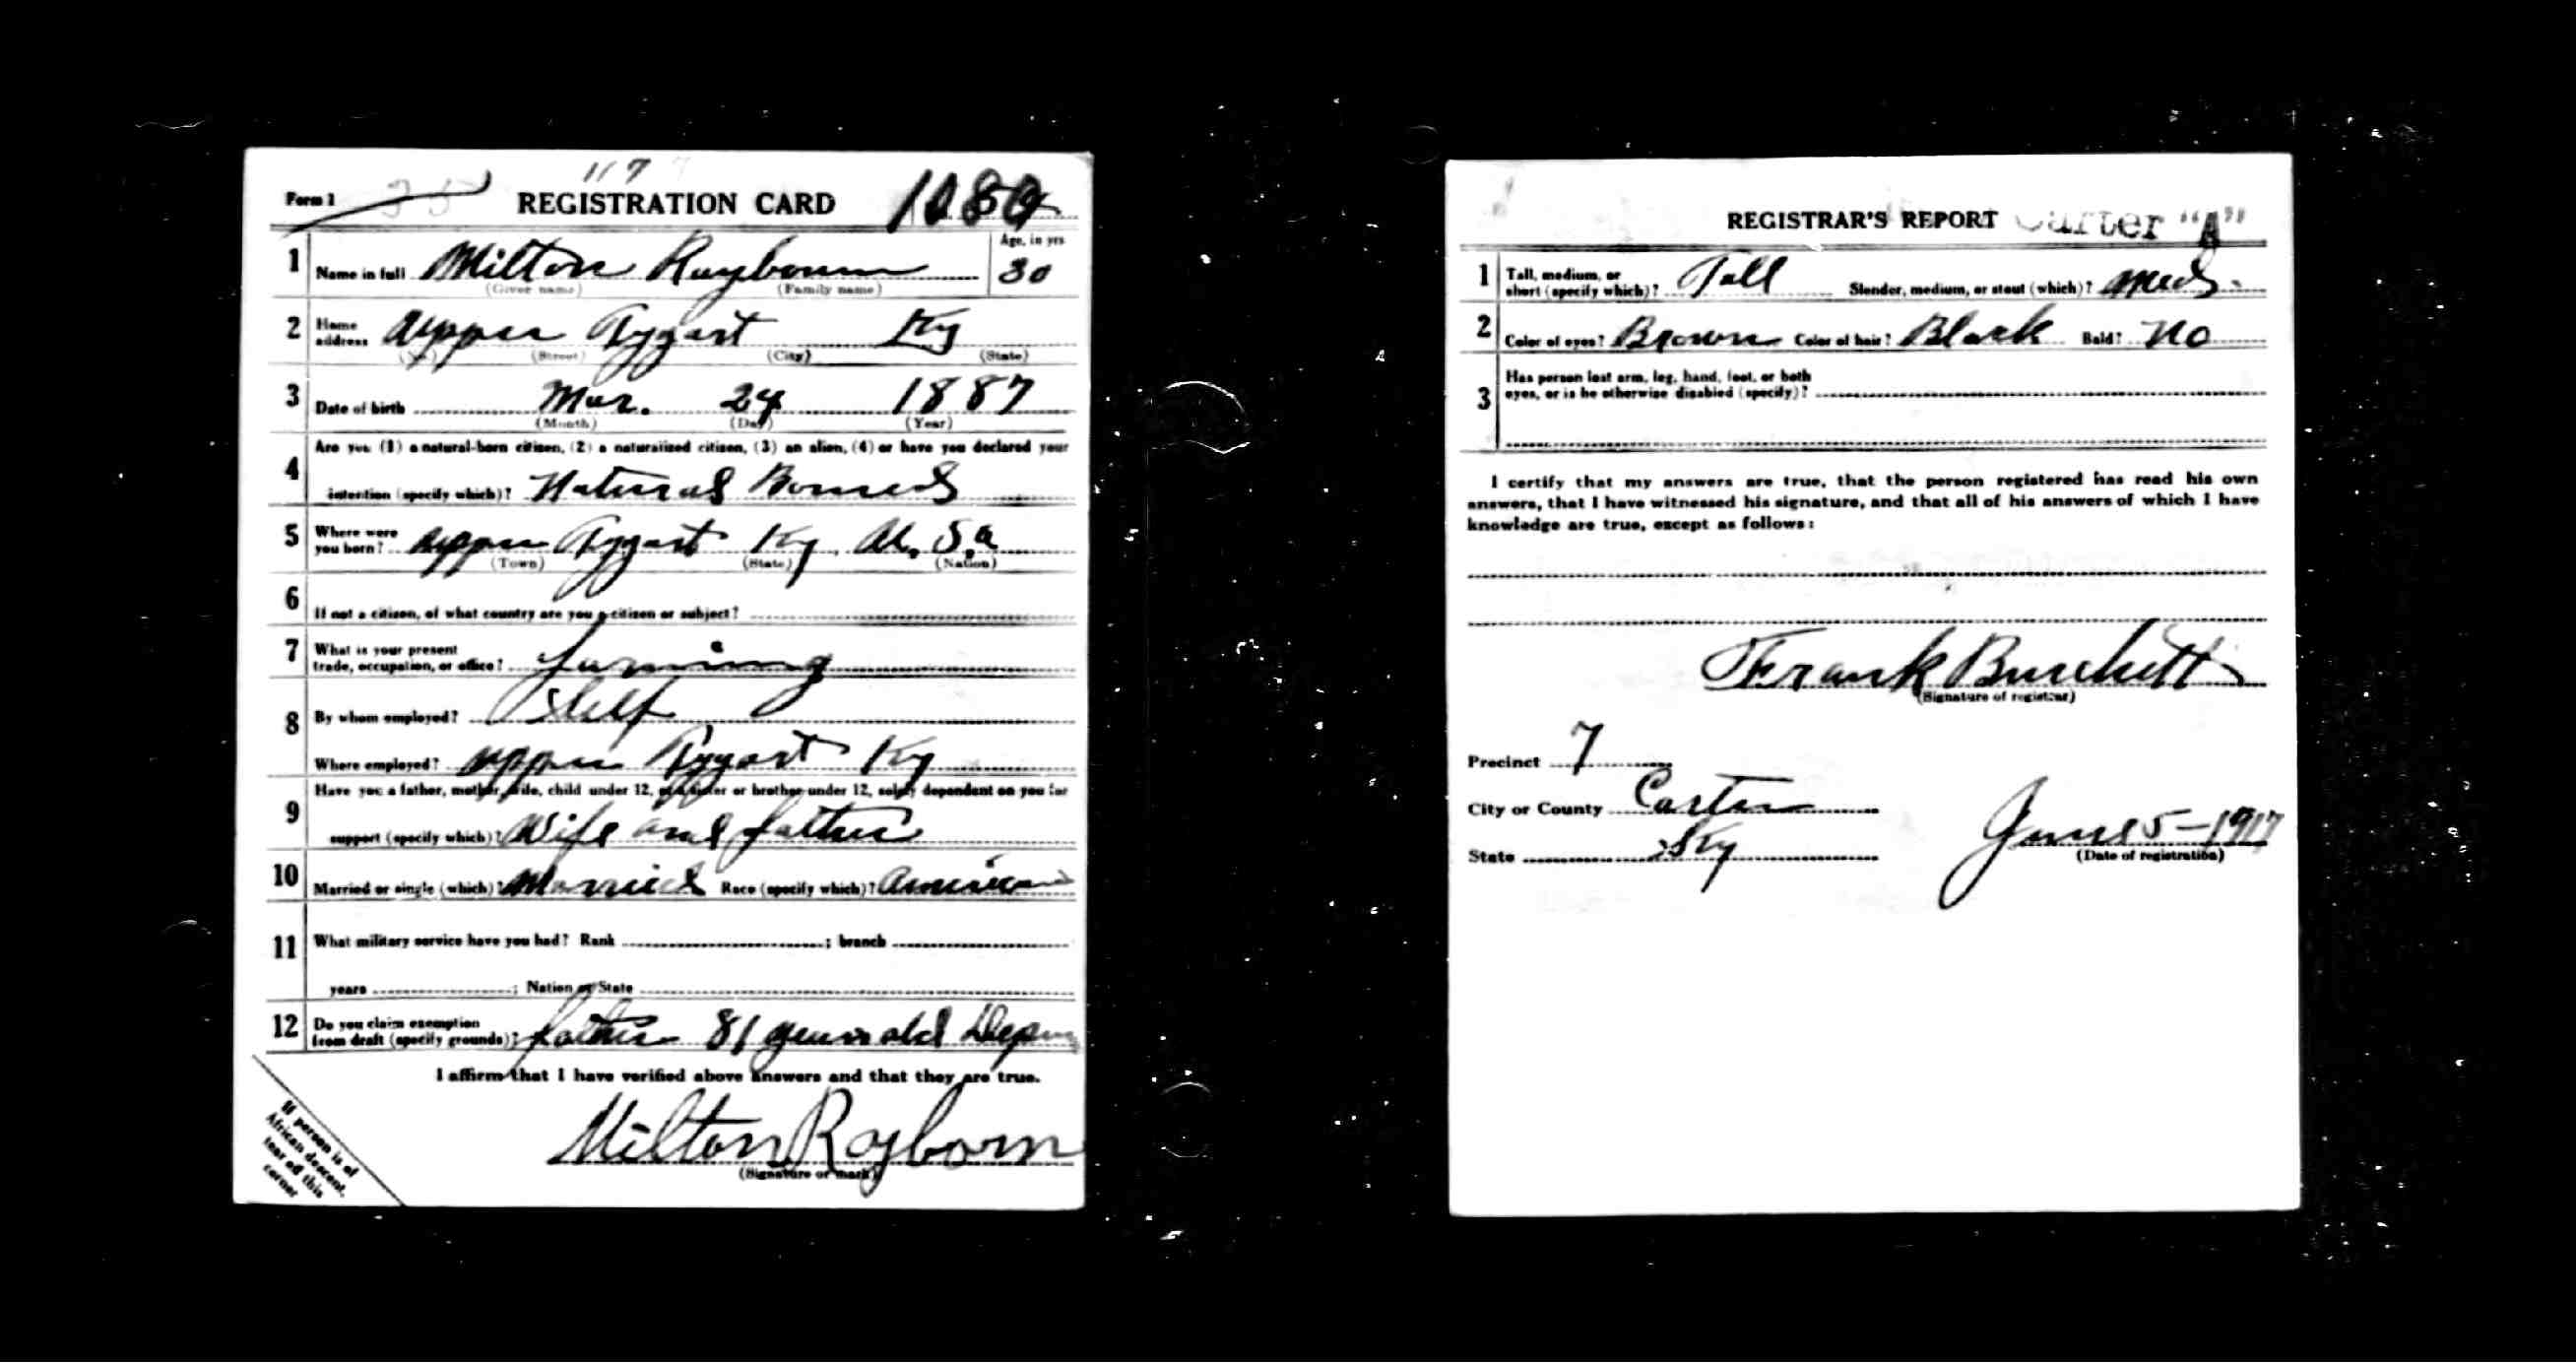 117
Form 1 REGISTRATION CARD
1 Name in full Milton Raybourn Age, in yrs 30
(Given name) (Family name)
2 Home address Upper Tygart Ky
(No.) (Street) (City) (State)
3 Date of birth Mar. 24 1887
(Month) (Day) (Year)
4 Are you (1) a natural-born citizen, (2) a naturalized citizen, (3) an alien, (4) or have you declared your
intention (specify which)? Natural Borned
5 Where were you born? Upper Tygart Ky. U. S. a
(Town) (State) (Nation)
6 If not a citizen, of what country are you a citizen or subject?
7 What is your present trade, occupation, or office? farming
8 By whom employed? Self
Where employed? Upper Tygart Ky
9 Have you a father, mother, wife, child under 12, or a sister or brother under 12, solely dependent on you for
support (specify which)? Wife and father
10 Married or single (which)? Married Race (specify which)? American
11 What military service have you had? Rank ; branch
years ; Nation or State
12 Do you claim exemption from draft (specify grounds)? father 81 years old
I affirm that I have verified above answers and that they are true.
Milton Rayborn
(Signature or mark)
If person is of
African descent,
tear off this
corner
REGISTRAR'S REPORT Carter "A"
1 Tall, medium, or short (specify which)? Tall Slender, medium, or stout (which)? Med.
2 Color of eyes? Brown Color of hair? Black Bald? No
3 Has person lost arm, leg, hand, foot, or both
eyes, or is he otherwise disabled (specify)?
I certify that my answers are true, that the person registered has read his own
answers, that I have witnessed his signature, and that all of his answers of which I have
knowledge are true, except as follows:
Frank Burchett
(Signature of registrar)
Precinct 7
City or County Carter
State Ky
June 5-1917
(Date of registration)